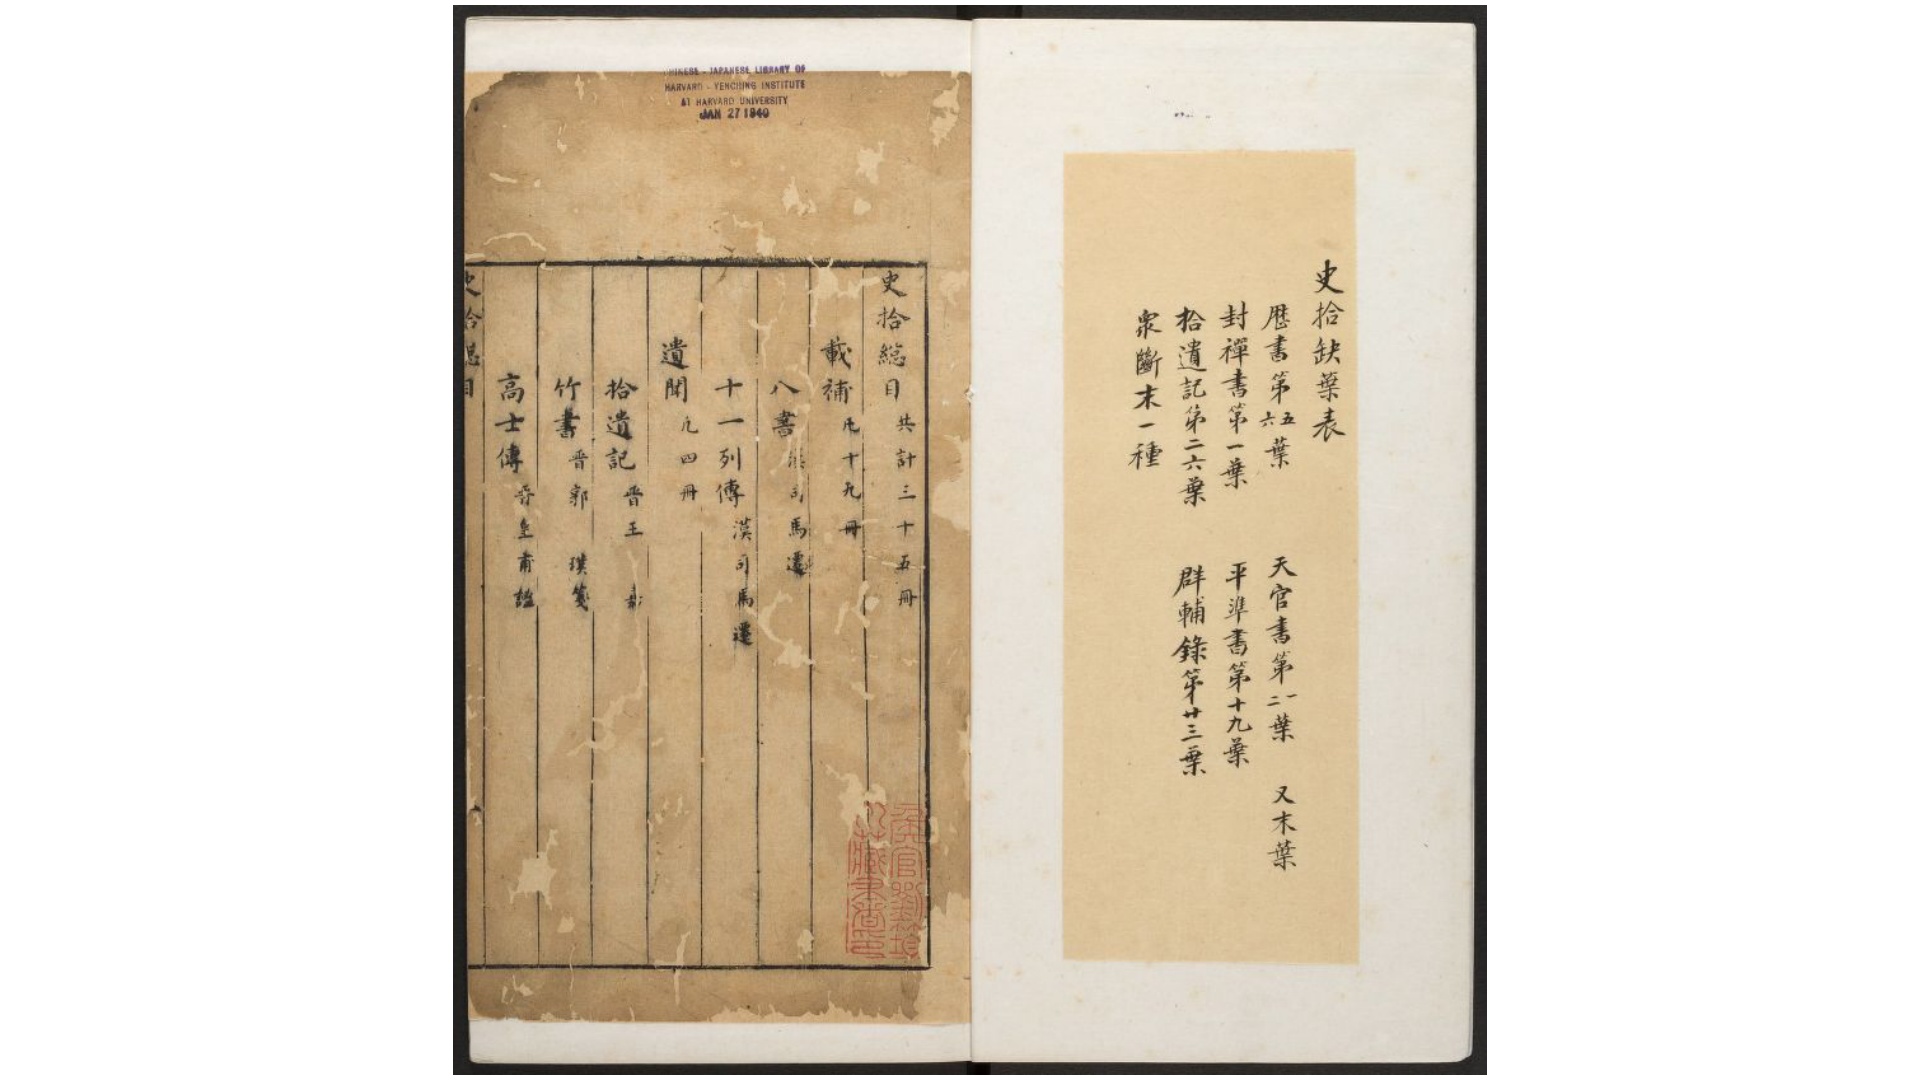 史拾缺葉表
歷書第五六葉 天官書第一二葉 又末葉
封禪書第一葉 平準書第十九葉
拾遺記第二六葉 群輔錄第廿三葉
衆斷末一種
CHINESE - JAPANESE LIBRARY OF
HARVARD - YENCHING INSTITUTE
AT HARVARD UNIVERSITY
JAN 27 1940
史拾總目 共計三十五冊
載補 凡十九冊
八書 漢司馬遷
十一列傳 漢司馬遷
遺聞 凡四冊
拾遺記 晉王嘉
竹書 晉郭璞箋
高士傳 晉皇甫謐
史拾總目
藏書畫印